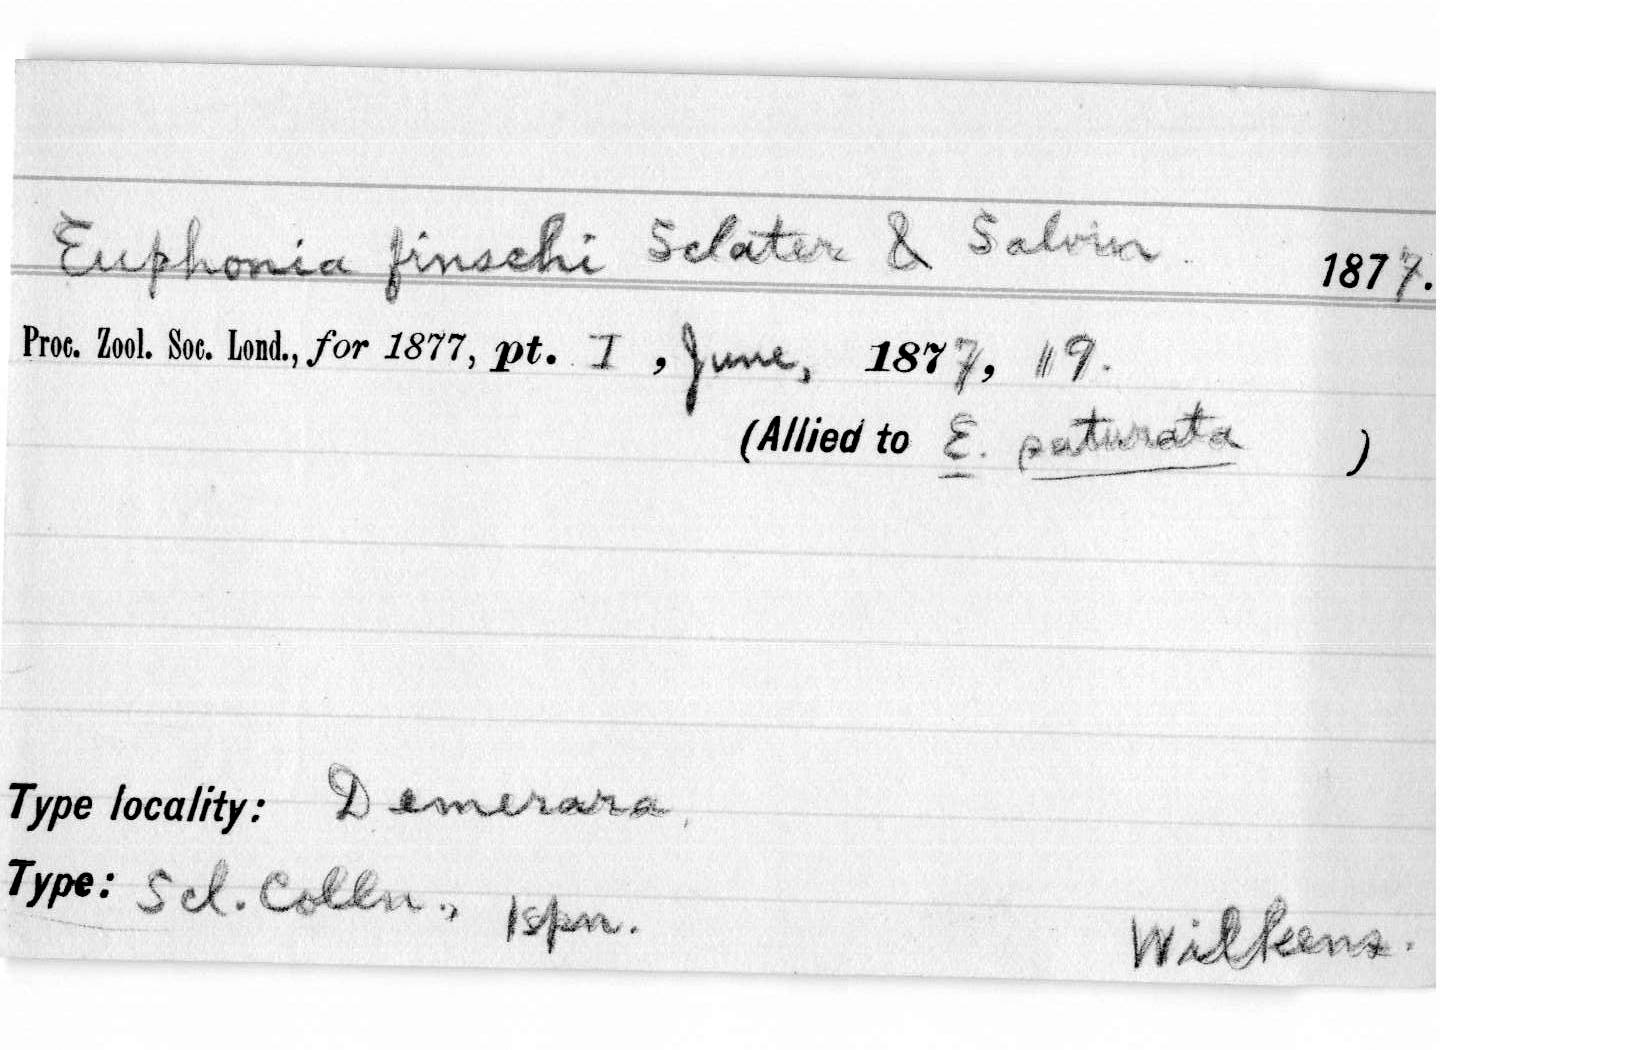 Euphonia finschi Sclater & Salvin 1877.
Proc. Zool. Soc. Lond., for 1877, pt. I, June, 1877, 19.
(Allied to E. saturata )
Type locality: Demerara.
Type: Scl. Colln., 1spn. Wilkens.